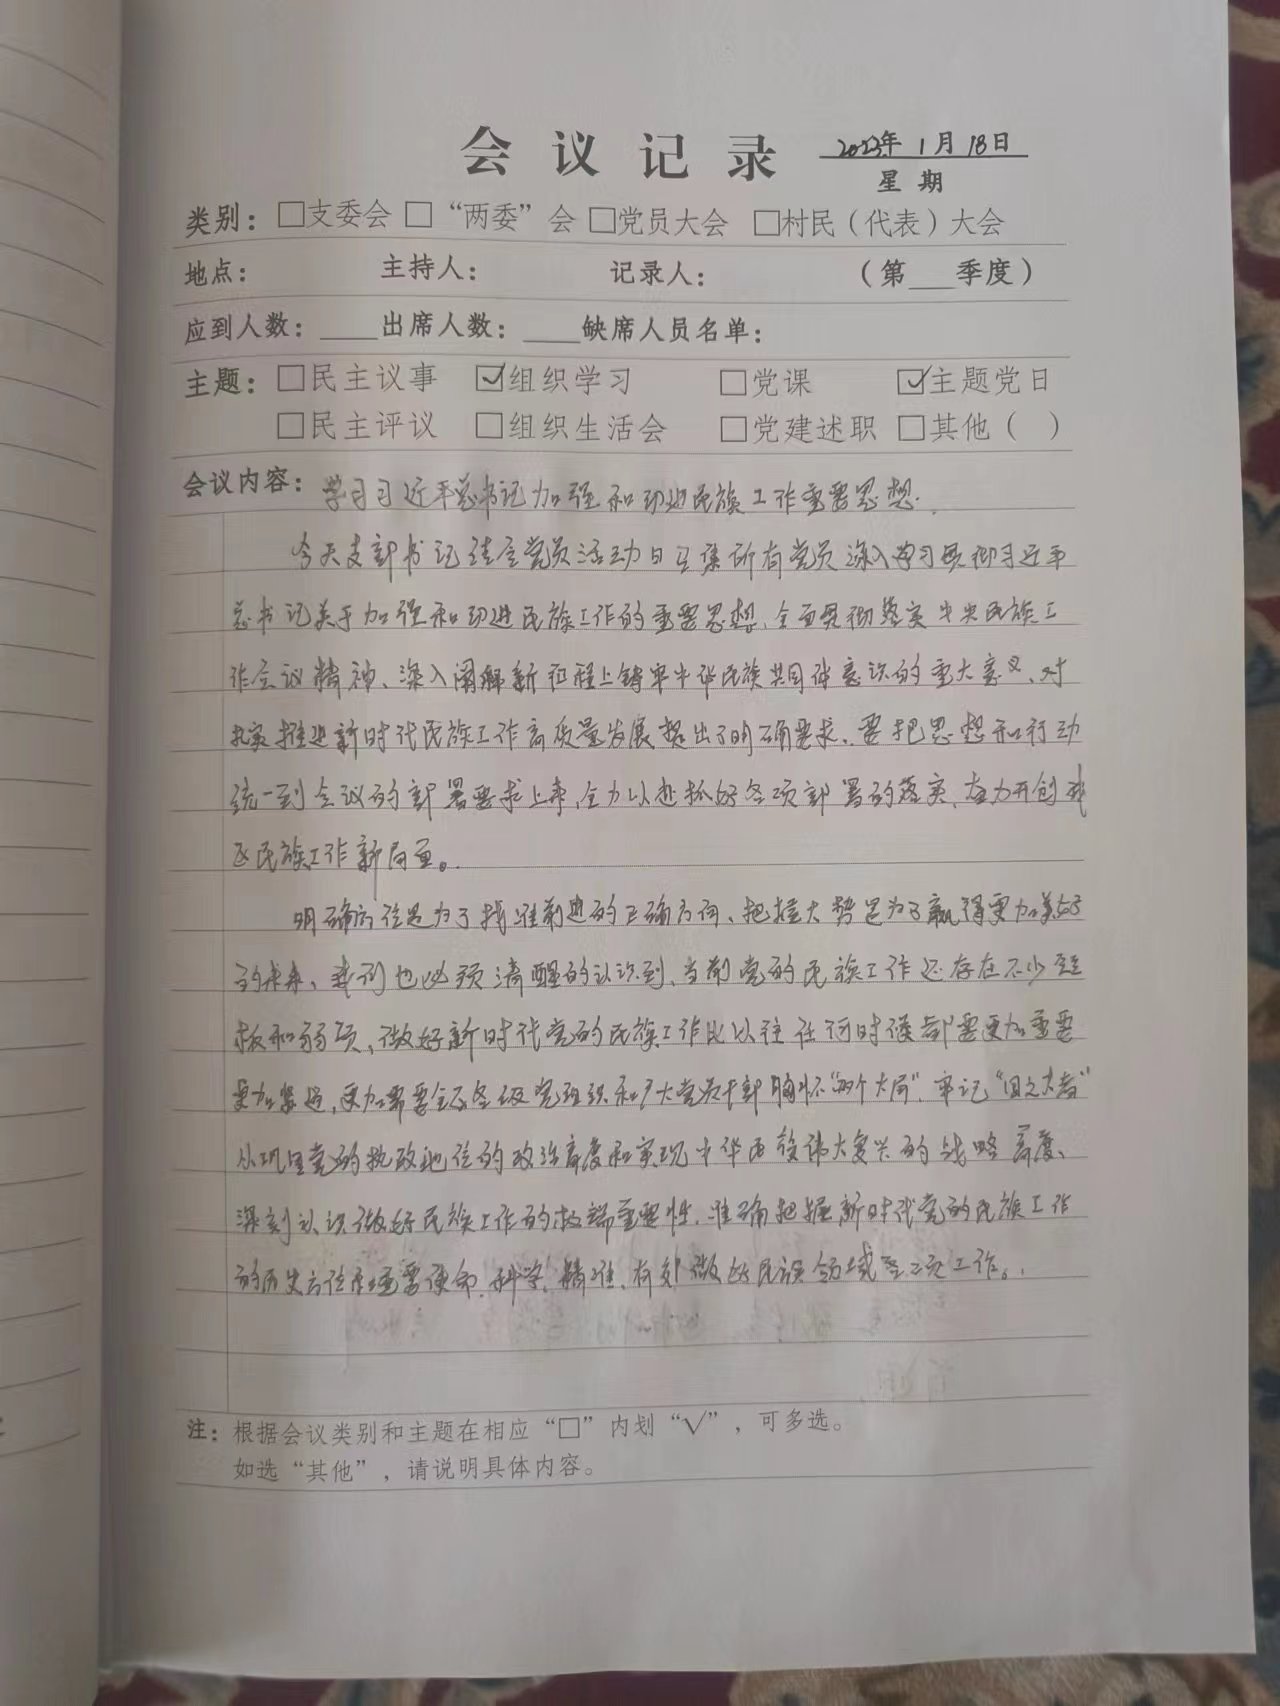 会议记录 2023年 1月 18日
星期
类别：□支委会 □“两委”会 □党员大会 □村民（代表）大会
地点： 主持人： 记录人： （第___季度）
应到人数：____出席人数：____缺席人员名单：
主题：□民主议事 ☑组织学习 □党课 ☑主题党日
□民主评议 □组织生活会 □党建述职 □其他（ ）
会议内容：学习习近平总书记加强和改进民族工作重要思想.
今天支部书记结合党员活动日召集所有党员深入学习贯彻习近平
总书记关于加强和改进民族工作的重要思想，全面贯彻落实中央民族工
作会议精神、深入阐释新征程上铸牢中华民族共同体意识的重大意义、对
推进新时代民族工作高质量发展提出了明确要求、要把思想和行动
统一到会议的部署要求上来，全力以赴抓好各项部署的落实、奋力开创我
区民族工作新局面。
明确方位是为了找准前进的正确方向、把握大势是为了赢得更加美好
的未来、我们也必须清醒的认识到、当前党的民族工作还存在不少短
板和弱项、做好新时代党的民族工作比以往任何时候都需更加重要
更加紧迫，更加需要全区各级党组织和广大党员干部胸怀“两个大局”、牢记“国之大者”
从巩固党的执政地位的政治高度和实现中华民族伟大复兴的战略高度、
深刻认识做好民族工作的极端重要性，准确把握新时代党的民族工作
的历史方位和重要使命，科学、精准、有效做好民族领域各项工作。
注：根据会议类别和主题在相应“□”内划“√”，可多选。
如选“其他”，请说明具体内容。